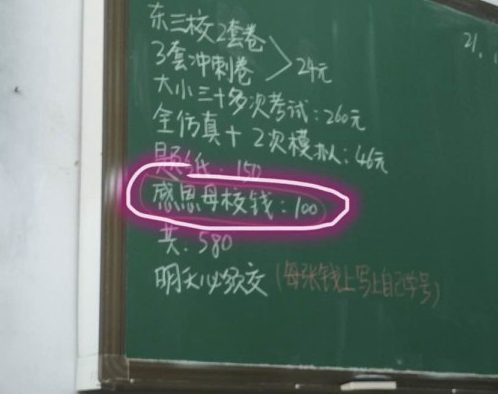 东三校2套卷
3套冲刺卷 > 24元
大小三十多次考试：260元
全仿真+2次模拟：46元
题纸：150
感恩母校钱：100
共：580
明天必须交（每张钱上写上自己学号）
21.